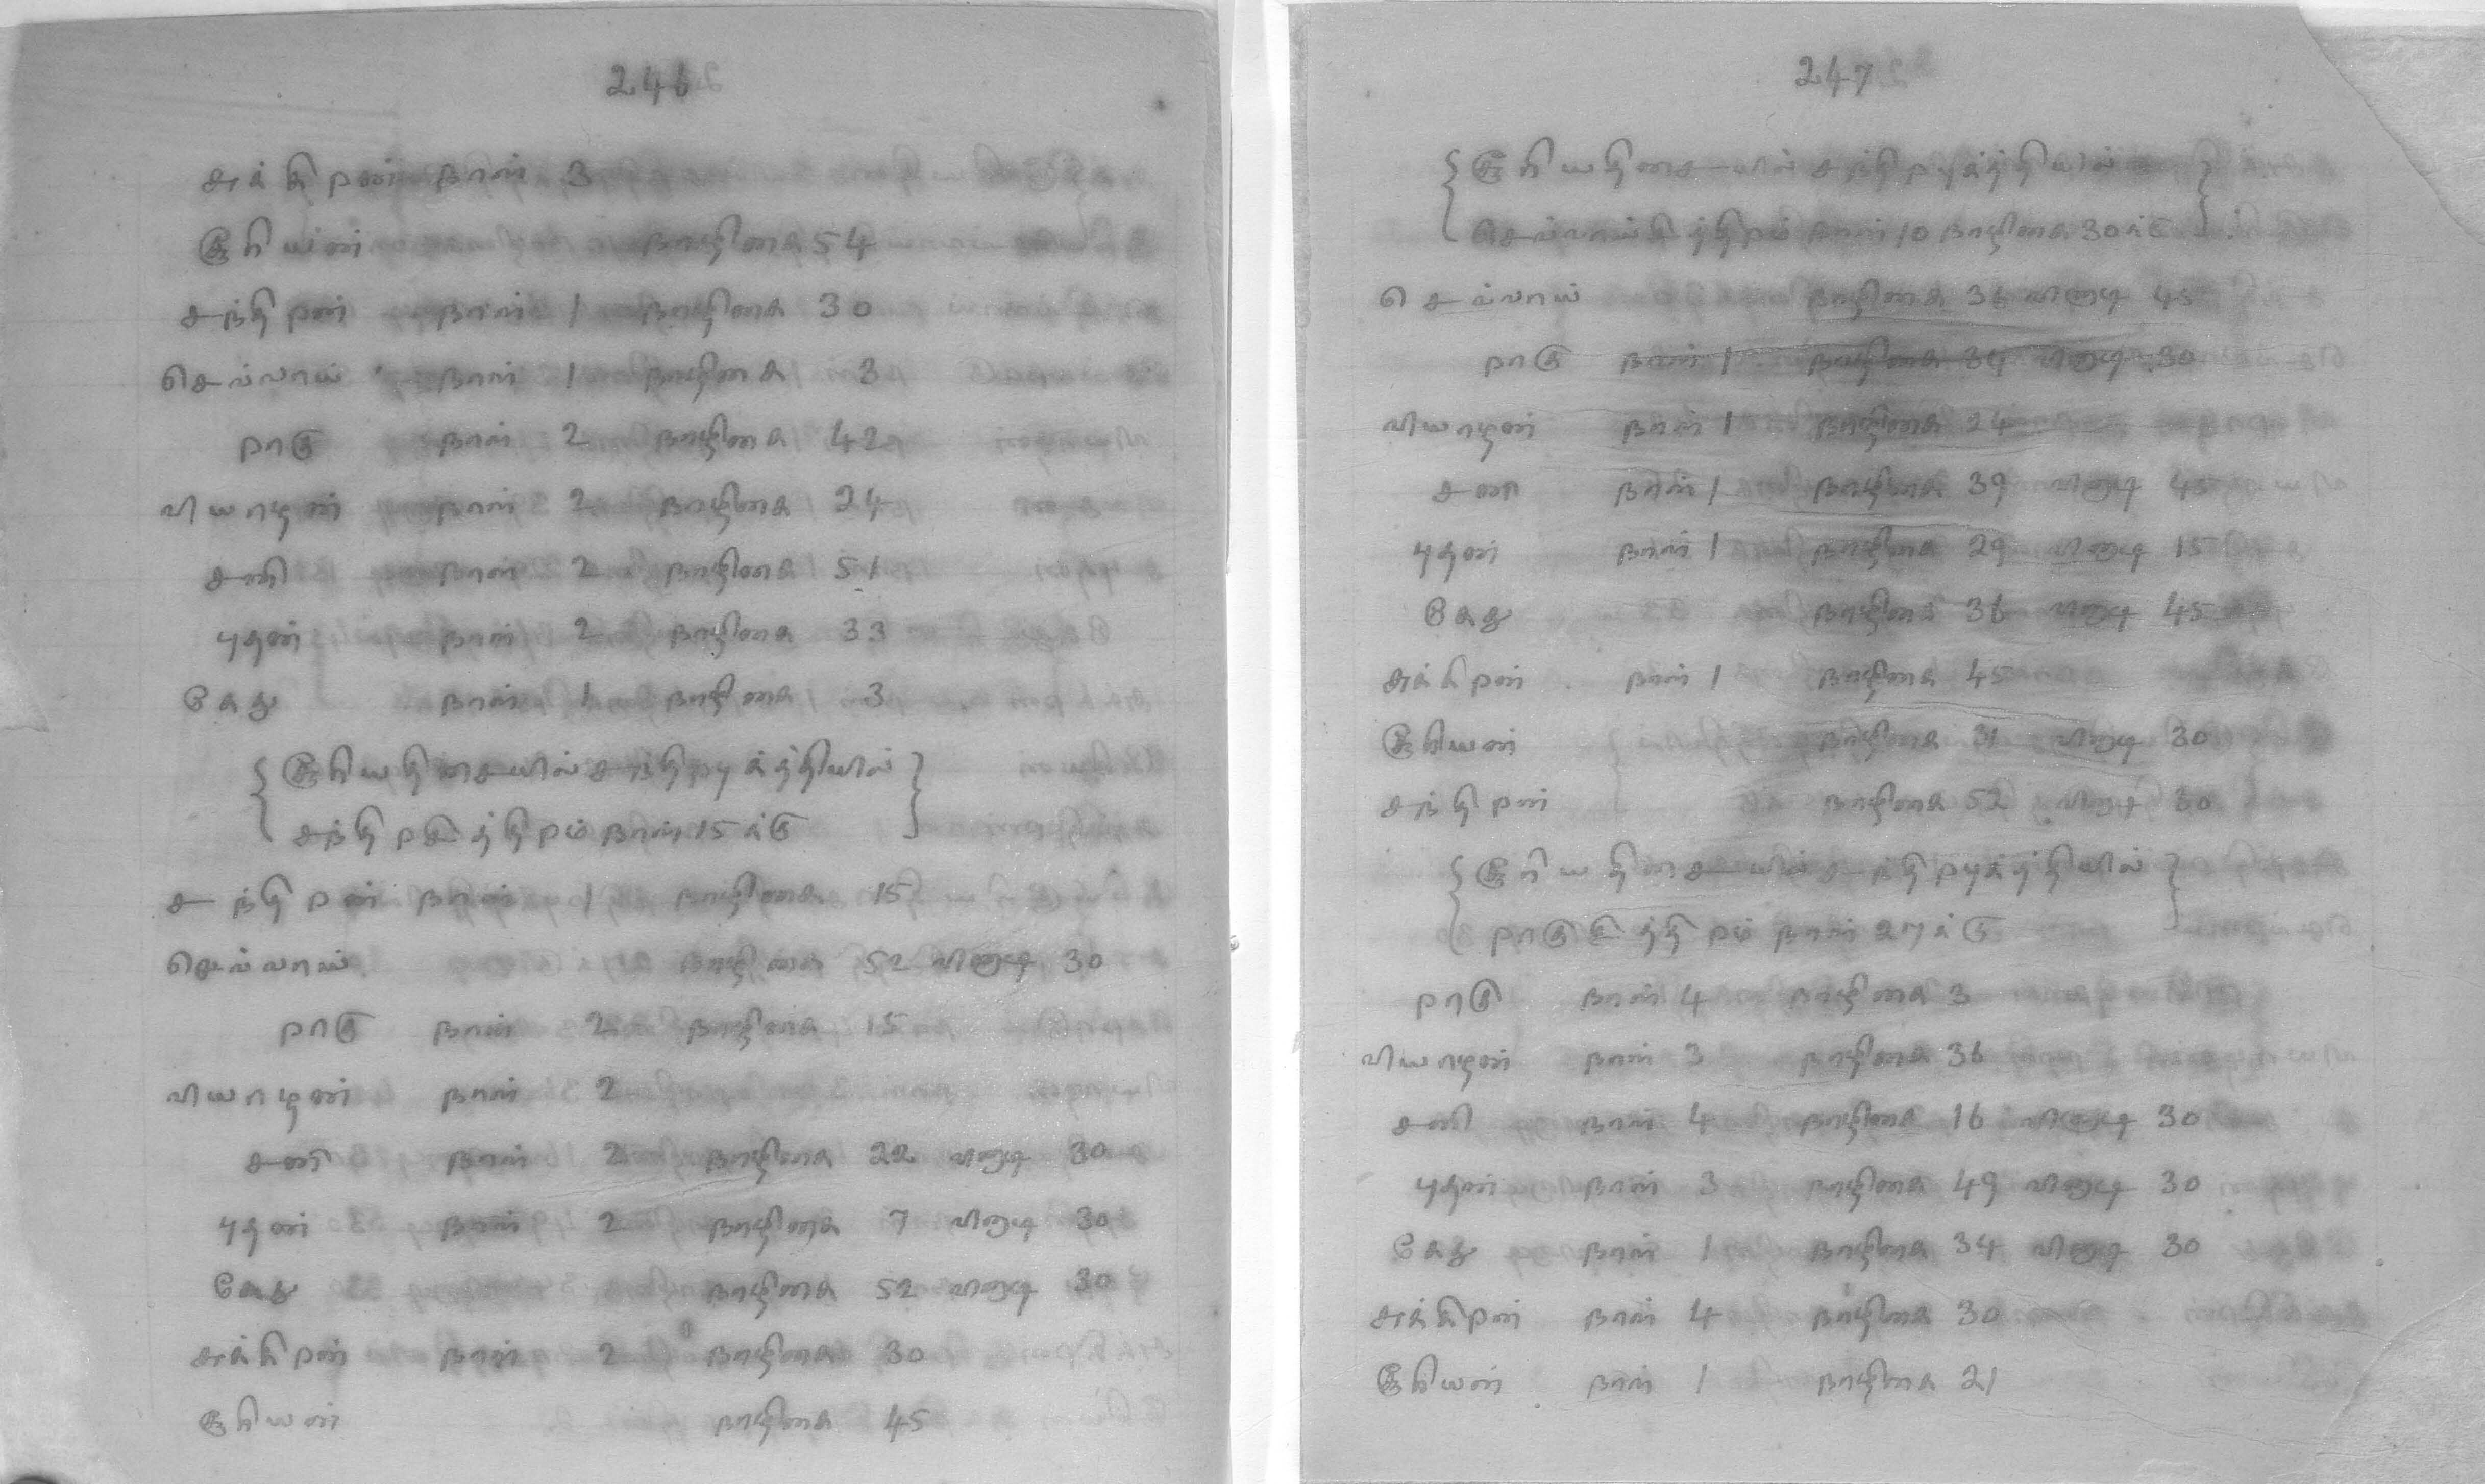 246
சுக்கிரன் நாள் 3
சூரியன் நாழிகை 54
சந்திரன் நாள் 1 நாழிகை 30
செவ்வாய் நாள் 1 நாழிகை 3
ராகு நாள் 2 நாழிகை 42
வியாழன் நாள் 2 நாழிகை 24
சனி நாள் 2 நாழிகை 51
புதன் நாள் 2 நாழிகை 33
கேது நாள் 1 நாழிகை 3
{ சூரியதிசையில் சந்திரபுத்தியில் }
{ சந்திரசித்திரம் நாள் 15க்கு }
சந்திரன் நாள் 1 நாழிகை 15
செவ்வாய் நாழிகை 52 வினாடி 30
ராகு நாள் 2 நாழிகை 15
வியாழன் நாள் 2
சனி நாள் 2 நாழிகை 22 வினாடி 30
புதன் நாள் 2 நாழிகை 7 வினாடி 30
கேது நாழிகை 52 வினாடி 30
சுக்கிரன் நாள் 2 நாழிகை 30
சூரியன் நாழிகை 45
247
{ சூரியதிசையில் சந்திரபுத்தியில் }
{ செவ்வாய்சித்திரம் நாள் 10 நாழிகை 30க்கு }
செவ்வாய் நாழிகை 36 வினாடி 45
ராகு நாள் 1 நாழிகை 34 வினாடி 30
வியாழன் நாள் 1 நாழிகை 24
சனி நாள் 1 நாழிகை 39 வினாடி 45
புதன் நாள் 1 நாழிகை 29 வினாடி 15
கேது நாழிகை 36 வினாடி 45
சுக்கிரன் நாள் 1 நாழிகை 45
சூரியன் நாழிகை 31 வினாடி 30
சந்திரன் நாழிகை 52 வினாடி 30
{ சூரியதிசையில் சந்திரபுத்தியில் }
{ ராகுசித்திரம் நாள் 27க்கு }
ராகு நாள் 4 நாழிகை 3
வியாழன் நாள் 3 நாழிகை 36
சனி நாள் 4 நாழிகை 16 வினாடி 30
புதன் நாள் 3 நாழிகை 49 வினாடி 30
கேது நாள் 1 நாழிகை 34 வினாடி 30
சுக்கிரன் நாள் 4 நாழிகை 30
சூரியன் நாள் 1 நாழிகை 21